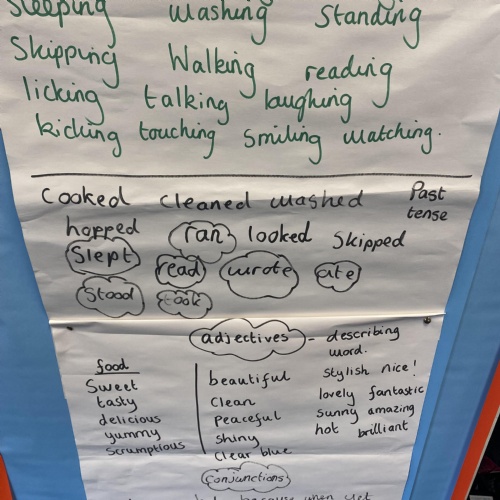 Sleeping washing Standing
Skipping Walking reading
licking talking laughing
kicking touching smiling watching.
Cooked cleaned washed Past tense
hopped ran looked Skipped
Slept read wrote ate
Stood took
adjectives - describing word.
food
Sweet
tasty
delicious
yummy
Scrumptious
beautiful
Clean
Peaceful
Shiny
Clear blue
Stylish nice!
lovely fantastic
sunny amazing
hot brilliant
Conjunctions
because when yet